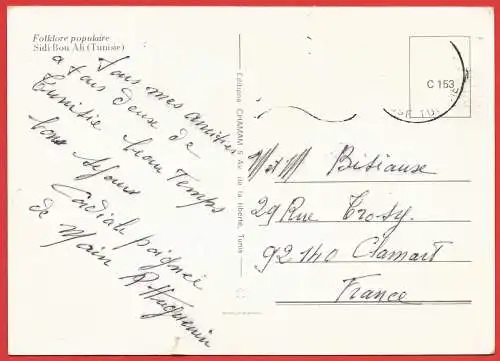 Folklore populaire
Sidi Bou Ali (Tunisie)
Tous mes amitiés
a tous deux de
Tunisie beau Temps
bon séjour
Cordiale poignée
de Main
P Huguenin
Editions CHAMAM 5 Av. de la liberté, Tunis
C 153
M et M Bitiause
29 Rue Trosy.
92140 Clamart
France